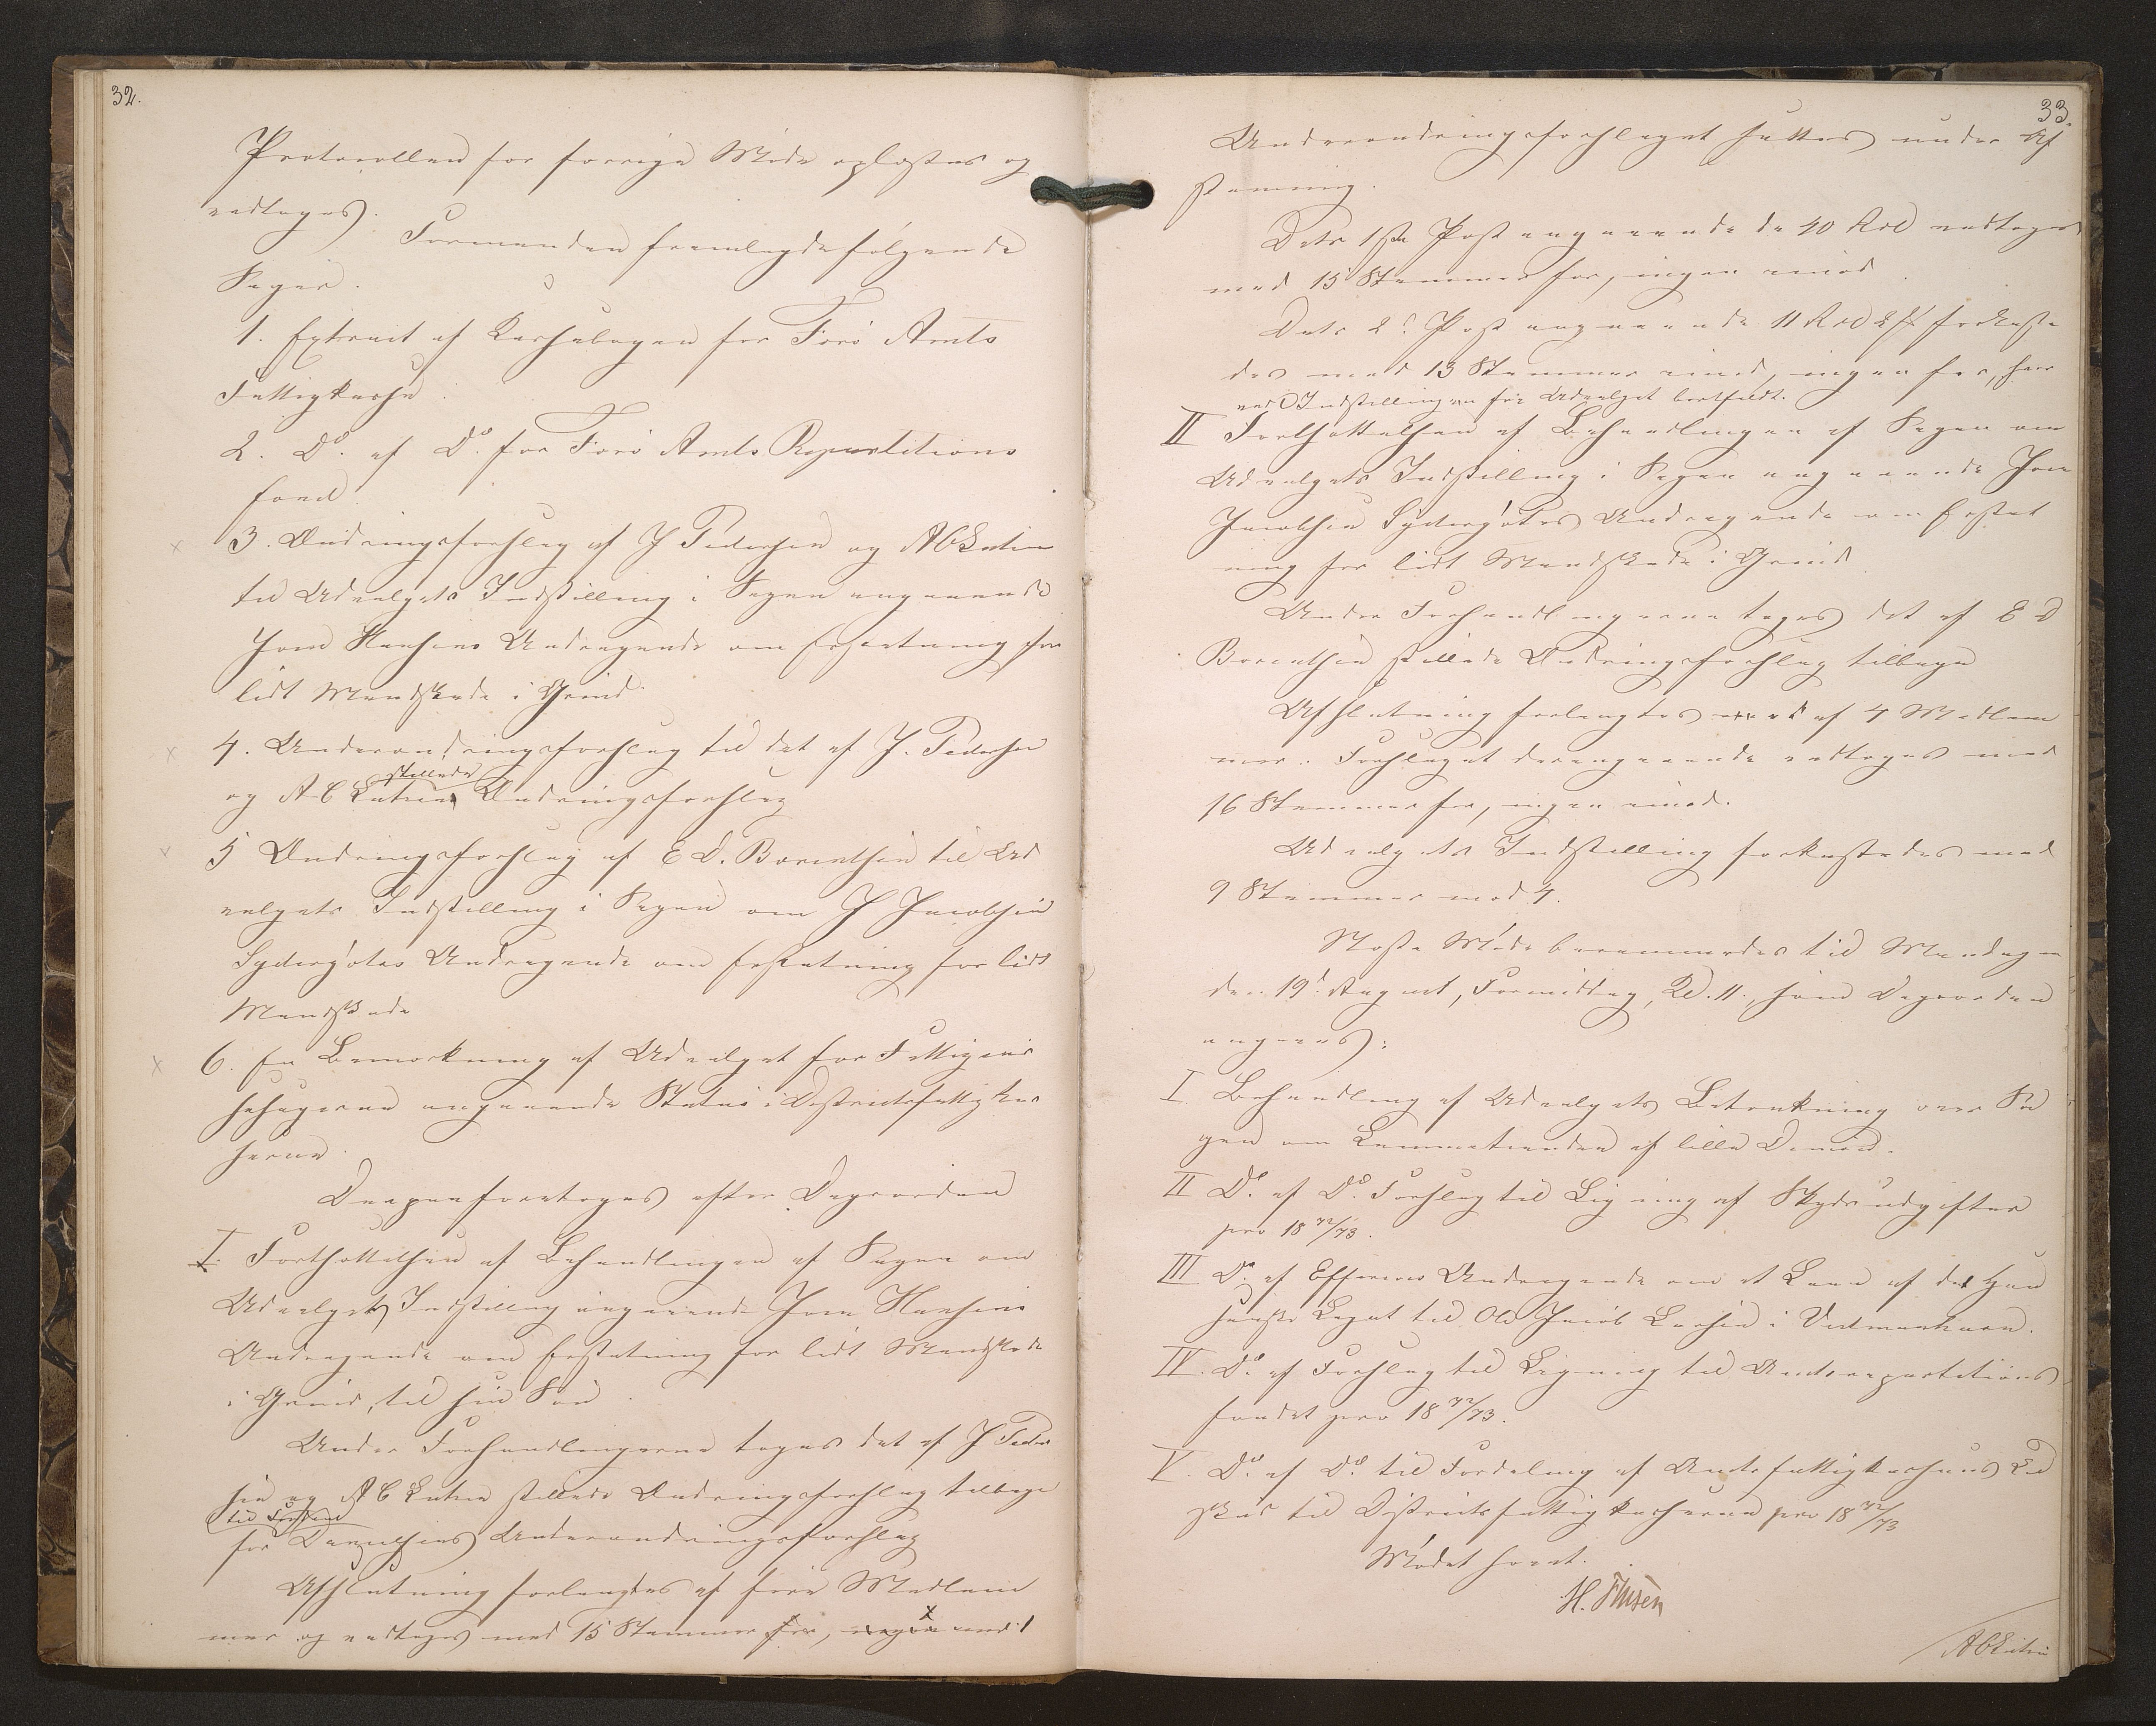 32.
Protocollen for forrige Møde oplæstes og
vedtoges.
Formanden fremlagde følgende
Sager.
1. Extract af Kassebogen for Færø Amts
Fattigkasse.
2. Do. af Do. for Færø Amts Repartitions
fond.
3. Ændringsforslag af J Pedersen og AC Lützen
til Udvalgets Indstilling i Sagen angaaende
Joen Hansens Andragende om Erstatning for
lidt Mandskade i Grind.
4. Underændringsforslag til det af J. Pedersen
og A C Lützen stillede Ændringsforslag
5 Ændringsforslag af E D. Bærentsen til Ud
valgets Indstilling i Sagen om J Jacobsen
Sydergøtes Andragende om Erstatning for lidt
Mandskade
6. En Bemærkning af Udvalget for Fattigvæ
sessagerne angaaende Status i Districtsfattigkas
serne.
Derpaa foretoges efter Dagsorden
I. Fortsættelsen af Behandlingen af Sagen om
Udvalgets Indstilling angaaende Joen Hansens
Andragende om Erstatning for lidt Mandskade
i Grind, til sin Søn.
Under Forhandlingerne toges det af J Peder
sen og A C Lützen stillede Ændringsforslag tilbage
til Fordeel
for Underændringsforslag
Afslutning forlangtes af fire Medlem
mer og vedtoges med 15 Stemmer for, ingen mod 1
33.
Underændringsforslaget sattes under Af
stemning.
Dets 1ste Post angaaende de 40 Rd vedtoges
med 15 Stemmer for, ingen imod.
Dets 2d. Post angaaende 11 Rd 2 ß forkaste
des med 13 Stemmer imod, ingen for, hvor
ved Indstillingen fra Udvalget bortfaldt.
II Fortsættelsen af Behandlingen af Sagen om
Udvalgets Indstilling i Sagen angaaende Joen
Jacobsen Sydergøtes Andragende om Erstat
ning for lidt Mandskade i Grind
Under Forhandlingerne toges det af E D
Bærentsen stillede Ændringsforslag tilbage
Afslutning forlangtes af 4 Medlem
mer. Forslaget derangaaende vedtoges med
16 Stemmer for, ingen imod.
Udvalgets Indstilling forkastedes med
9 Stemmer mod 4.
Næste Møde berammedes til Mandagen
den 19d. August, Formiddag, Kl. 11., som Dagsorden
angaves:
I. Behandling af Udvalgets Betænkning over Sa
gen om Lammetienden af lille Dimon.
II Do. af Do. Forslag til Ligning af Skydsudgifter
pro 18 72/73.
III Do. af Andragende om et Laan af det Han
senske Legat til Ole Jacob Larsen i Vestmanhavn.
IV. Do. af Forslag til Ligning til Amtsrepartitions
fondet pro 18 72/73.
V. Do. af Do. til Fordeling af Amtsfattigkassens Til
skud til Districtsfattigkasserne pro 18 72/73
Mødet hævet.
H. Finsen
AC Lützen